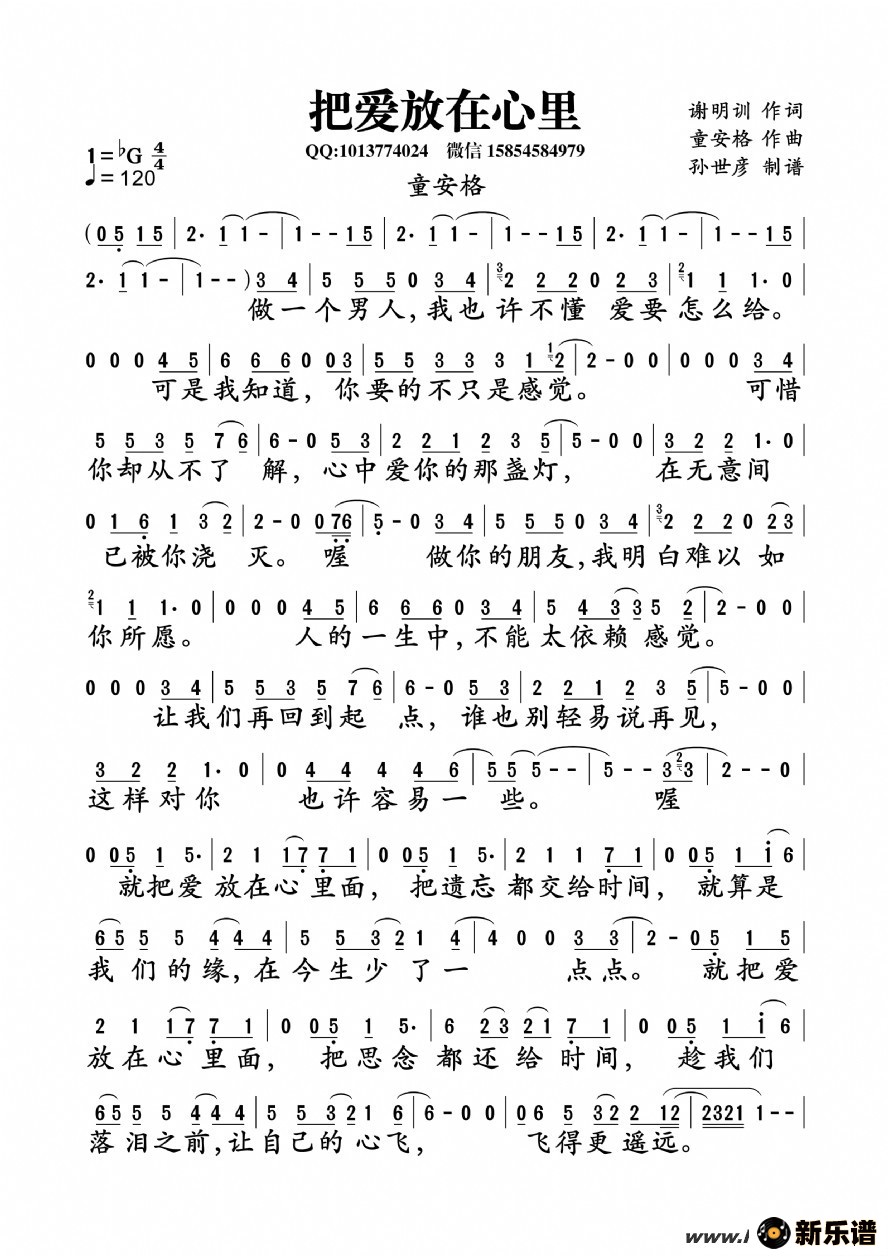 把爱放在心里
谢明训 作词
童安格 作曲
孙世彦 制谱
1=♭G 4/4
♩=120
QQ:1013774024 微信 15854584979
童安格
( 0 5 1 5 | 2· 1 1 - | 1 - - 1 5 | 2· 1 1 - | 1 - - 1 5 | 2· 1 1 - | 1 - - 1 5 |
2· 1 1 - | 1 - - ) 3 4 | 5 5 5 0 3 4 | 3 2 2 2 0 2 3 | 2 1 1 1· 0 |
做一个男人,我也许不懂 爱要怎么给。
0 0 0 4 5 | 6 6 6 0 0 3 | 5 5 3 3 3 1 1 2 | 2 - 0 0 | 0 0 0 3 4 |
可是我知道, 你要的不只是感觉。 可惜
5 5 3 5 7 6 | 6 - 0 5 3 | 2 2 1 2 3 5 | 5 - 0 0 | 3 2 2 1· 0 |
你却从不了 解, 心中爱你的那盏灯, 在无意间
0 1 6 1 3 2 | 2 - 0 0 7 6 | 5 - 0 3 4 | 5 5 5 0 3 4 | 3 2 2 2 0 2 3 |
已被你浇 灭。 喔 做你的朋友,我明白难以 如
2 1 1 1· 0 | 0 0 0 4 5 | 6 6 6 0 3 4 | 5 4 3 3 5 2 | 2 - 0 0 |
你所愿。 人的一生中,不能 太依赖 感觉。
0 0 0 3 4 | 5 5 3 5 7 6 | 6 - 0 5 3 | 2 2 1 2 3 5 | 5 - 0 0 |
让我们再回到起 点, 谁也别轻易说再见,
3 2 2 1· 0 | 0 4 4 4 4 6 | 5 5 5 - - | 5 - - 3 2 3 | 2 - 0 0 |
这样对你 也许容易一 些。 喔
0 0 5 1 5· | 2 1 1 7 7 1 | 0 0 5 1 5· | 2 1 1 1 7 1 | 0 0 5 1 1 6 |
就把爱 放在心 里面, 把遗忘 都交给时间, 就算是
6 5 5 5 4 4 4 | 5 5 3 2 1 4 | 4 0 0 3 3 | 2 - 0 5 1 5 |
我 们的缘,在今生少 了一 点点。 就把爱
2 1 1 7 7 1 | 0 0 5 1 5· | 6 2 3 2 1 7 1 | 0 0 5 1 1 6 |
放在心 里面, 把思念 都还 给 时间, 趁我们
6 5 5 5 4 4 4 | 5 5 3 2 1 6 | 6 - 0 0 | 0 6 5 3 2 2 1 2 | 2 3 2 1 1 - - |
落 泪之前,让自己的 心飞, 飞得更 遥远。
www.
新乐谱